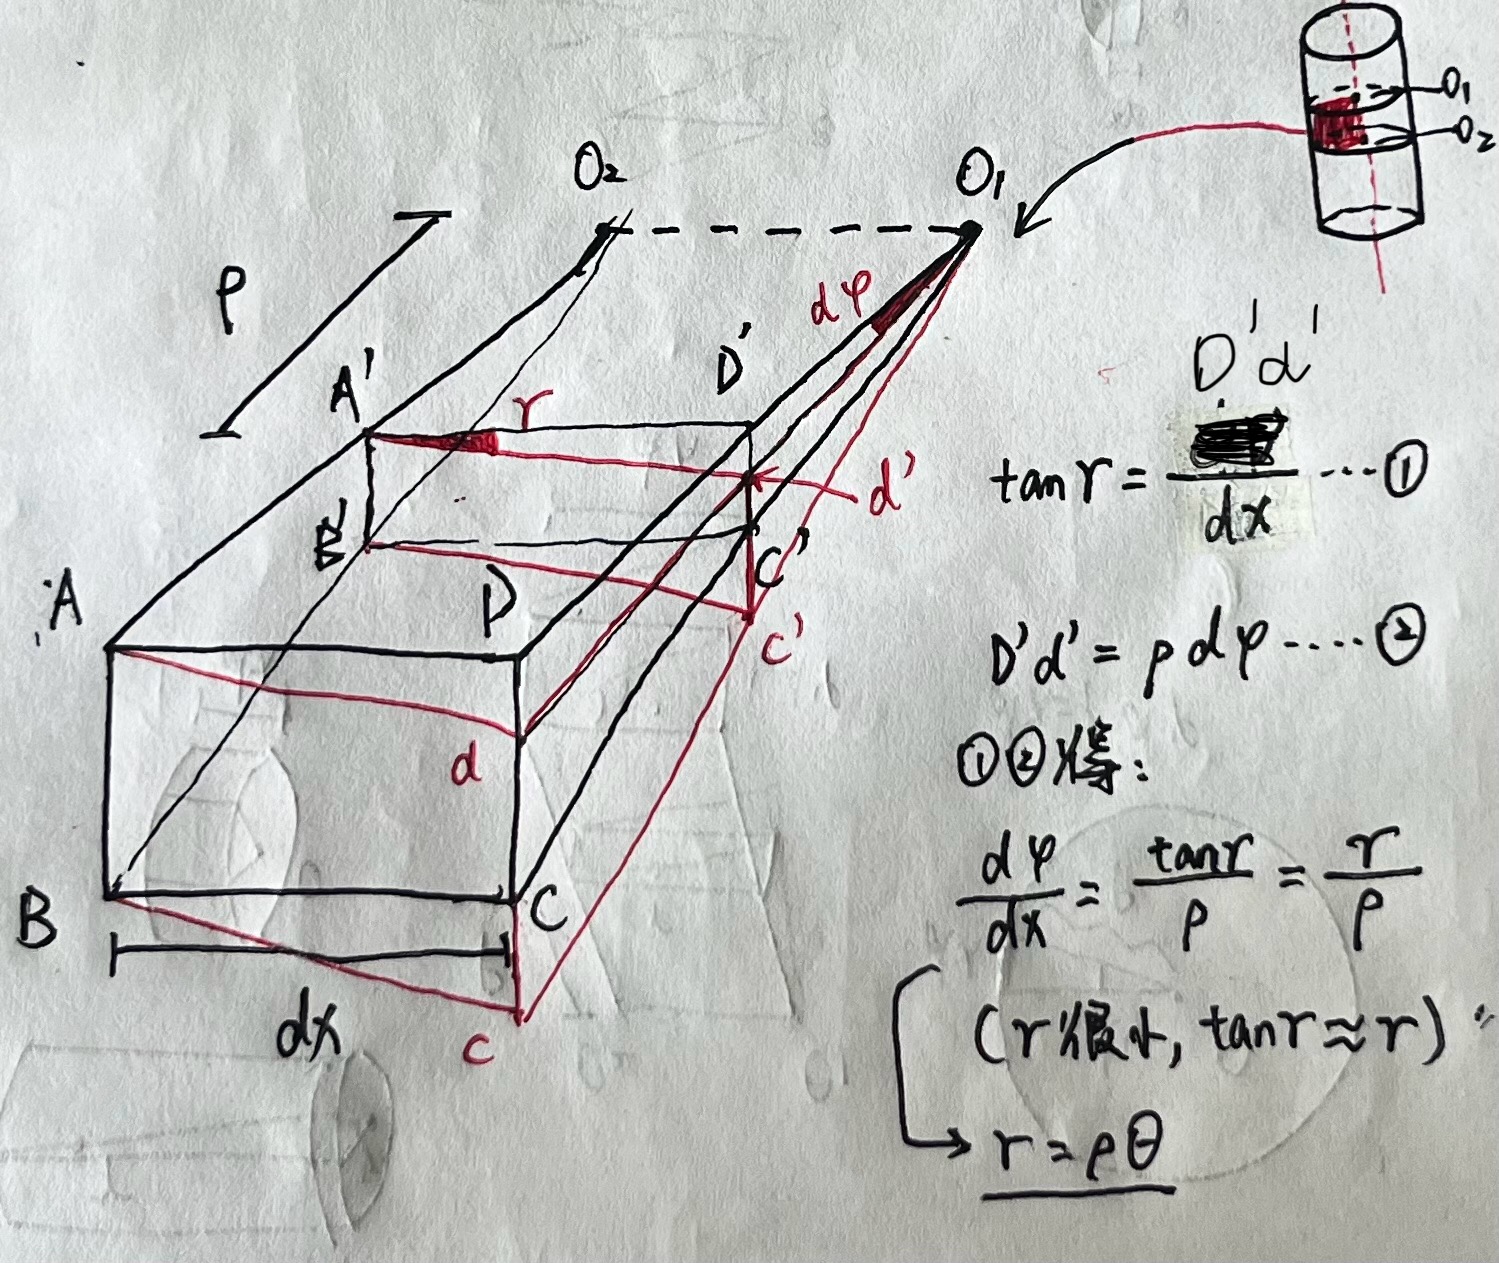 O₁
O₂
O₂
O₁
ρ
dφ
A'
r
D'
d'
B'
C'
A
D
c'
d
B
C
dx
c
D'd'
tanr = ―― ····①
dx
D'd' = ρdφ ·····②
①②得:
dφ/dx = tanr/ρ = r/ρ
(r很小, tanr≈r)
r = ρθ